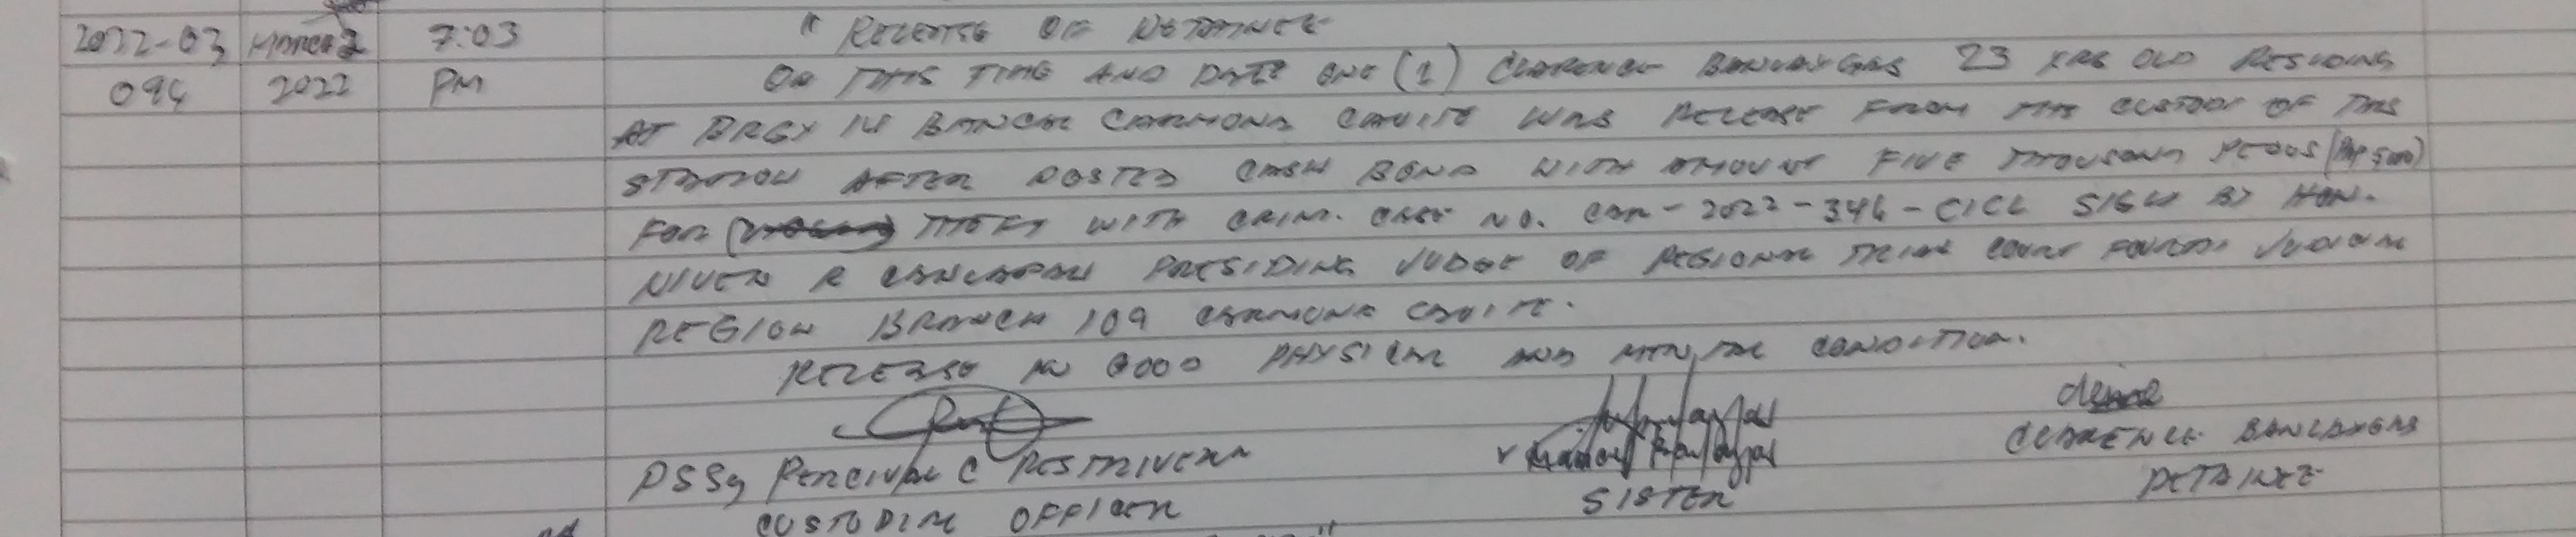 " RELEASE OF DETAINEE
2022-03 MARCH 2 7:03
094 2022 PM ON THIS TIME AND DATE ONE (1) CLARENCE 23 YRS OLD RESIDING
AT BRGY 14 CARMONA CAVITE WAS RELEASE FROM THE CUSTODY OF THIS
STATION AFTER POSTED CASH BOND WITH AMOUNT FIVE THOUSAND PESOS (PHP 5000)
FOR THEFT WITH CRIM. CASE NO. CAR-2022-346-CICL SIGN BY HON.
NIVEN R PRESIDING JUDGE OF REGIONAL TRIAL COURT FOURTH JUDICIAL
REGION BRANCH 109 CARMONA CAVITE.
RELEASE IN GOOD PHYSICAL AND MENTAL CONDITION.
PSSg PERCIVAL C
CUSTODIAL OFFICER
SISTER
CLARENCE
DETAINEE